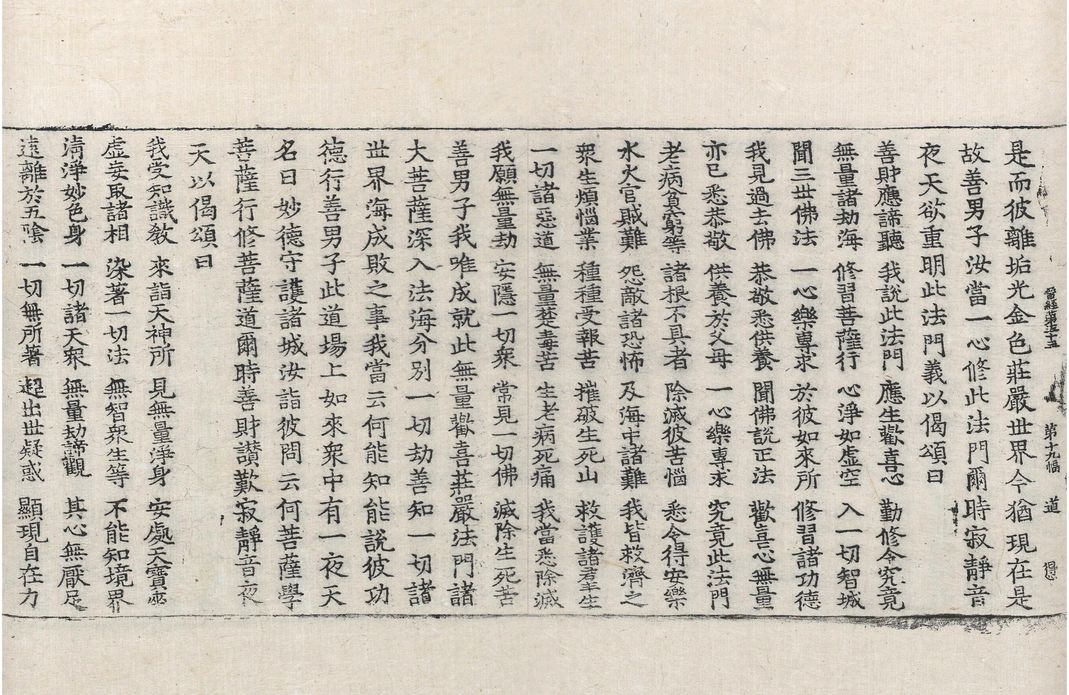 晉經第五十五 第十九幅 道
是而彼離垢光金色莊嚴世界今猶現在是
故善男子汝當一心修此法門爾時寂靜音
夜天欲重明此法門義以偈頌曰
善財應諦聽 我說此法門 應生歡喜心 勤修令究竟
無量諸劫海 修習菩薩行 心淨如虛空 入一切智城
聞三世佛法 一心樂專求 於彼如來所 修習諸功德
我見過去佛 恭敬悉供養 聞佛說正法 歡喜心無量
亦已悉恭敬 供養於父母 一心樂專求 究竟此法門
老病貧窮等 諸根不具者 除滅彼苦惱 悉令得安樂
水火官賊難 怨敵諸恐怖 及海中諸難 我皆救濟之
衆生煩惱業 種種受報苦 摧破生死山 救護諸羣生
一切諸惡道 無量楚毒苦 生老病死痛 我當悉除滅
我願無量劫 安隱一切衆 常見一切佛 滅除生死苦
善男子我唯成就此無量歡喜莊嚴法門諸
大菩薩深入法海分別一切劫善知一切諸
世界海成敗之事我當云何能知能說彼功
德行善男子此道場上如來衆中有一夜天
名曰妙德守護諸城汝詣彼問云何菩薩學
菩薩行修菩薩道爾時善財讃歎寂靜音夜
天以偈頌曰
我受知識敎 來詣天神所 見無量淨身 安處天寶座
虛妄取諸相 染著一切法 無智衆生等 不能知境界
淸淨妙色身 一切諸天衆 無量劫諦觀 其心無厭足
遠離於五陰 一切無所著 超出世疑惑 顯現自在力